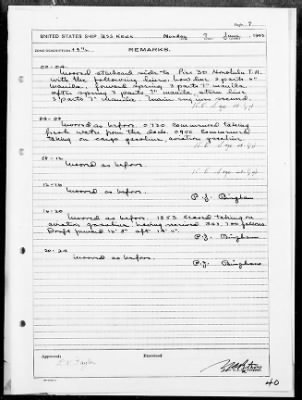 Page 7
UNITED STATES SHIP USS Keos Monday 2 June, 194
ZONE DESCRIPTION +10½ REMARKS.
00-04
Moored starboard side to Pier 30 Honolulu T.H.
with the following lines, bow line 3 parts 6"
manila, forward spring 3 parts 7" manila
after spring 3 parts 7" manila, stern line
3 parts 7" manila. Main engines secured.
04-08
Moored as before. 0730 commenced taking
fresh water from the dock. 0755 commenced
taking on cargo gasoline, aviation gasoline.
08-12
Moored as before.
12-16
Moored as before.
P. J. Bingham
16-20
Moored as before. 1853 ceased taking on
aviation gasoline having received gallons.
Draft forward aft
P. J. Bingham
20-24
Moored as before.
P. J. Bingham
Approved: Examined:
Taylor
40